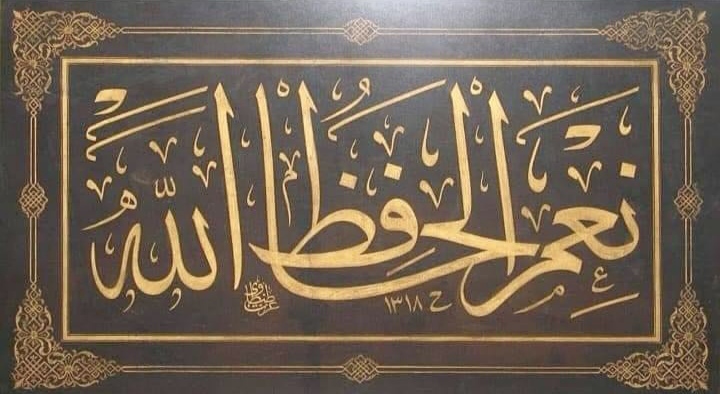 نِعْمَ الْحَافِظُ اللّٰهُ
١٣١٨